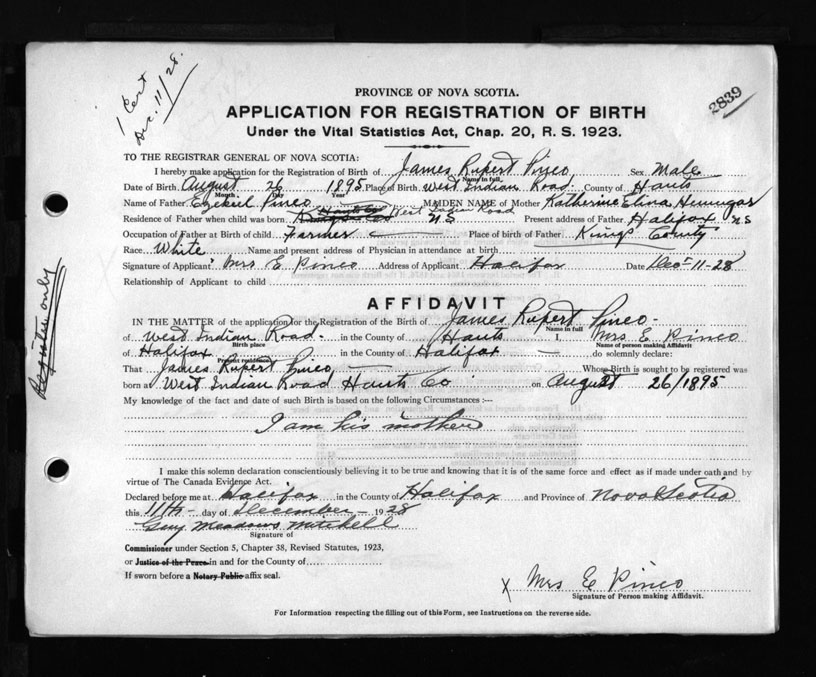 1 Cert
Dec. 11/28.
2839
PROVINCE OF NOVA SCOTIA.
APPLICATION FOR REGISTRATION OF BIRTH
Under the Vital Statistics Act, Chap. 20, R. S. 1923.
TO THE REGISTRAR GENERAL OF NOVA SCOTIA:
I hereby make application for the Registration of Birth of James Rupert Pineo Sex Male
Name in full
Date of Birth August 26 1895 Place of Birth West Indian Road County of Hants
Month Day Year
Name of Father Ezekiel Pineo MAIDEN NAME of Mother Katherine Hemingar
Residence of Father when child was born Hants Co West Indian Road N.S Present address of Father Halifax N S
Occupation of Father at Birth of child Farmer Place of birth of Father Kings County
Race White Name and present address of Physician in attendance at birth
Signature of Applicant Mrs E Pineo Address of Applicant Halifax Date Dec 11-28
Relationship of Applicant to child
AFFIDAVIT
IN THE MATTER of the application for the Registration of the Birth of James Rupert Pineo
Name in full
of West Indian Road in the County of Hants I, Mrs E Pineo
Birth place Name of person making Affidavit
of Halifax in the County of Halifax do solemnly declare:
Present residence
That James Rupert Pineo Whose Birth is sought to be registered was
born at West Indian Road Hants Co on August 26/1895
My knowledge of the fact and date of such Birth is based on the following Circumstances :—
I am his mother
I make this solemn declaration conscientiously believing it to be true and knowing that it is of the same force and effect as if made under oath and by
virtue of The Canada Evidence Act.
Declared before me at Halifax in the County of Halifax and Province of Nova Scotia
this 11th day of December 1928
Guy Meadows Mitchell
Signature of
Commissioner under Section 5, Chapter 38, Revised Statutes, 1923,
or Justice of the Peace in and for the County of
If sworn before a Notary Public affix seal.
X Mrs E Pineo
Signature of Person making Affidavit.
For Information respecting the filling out of this Form, see Instructions on the reverse side.
Register only